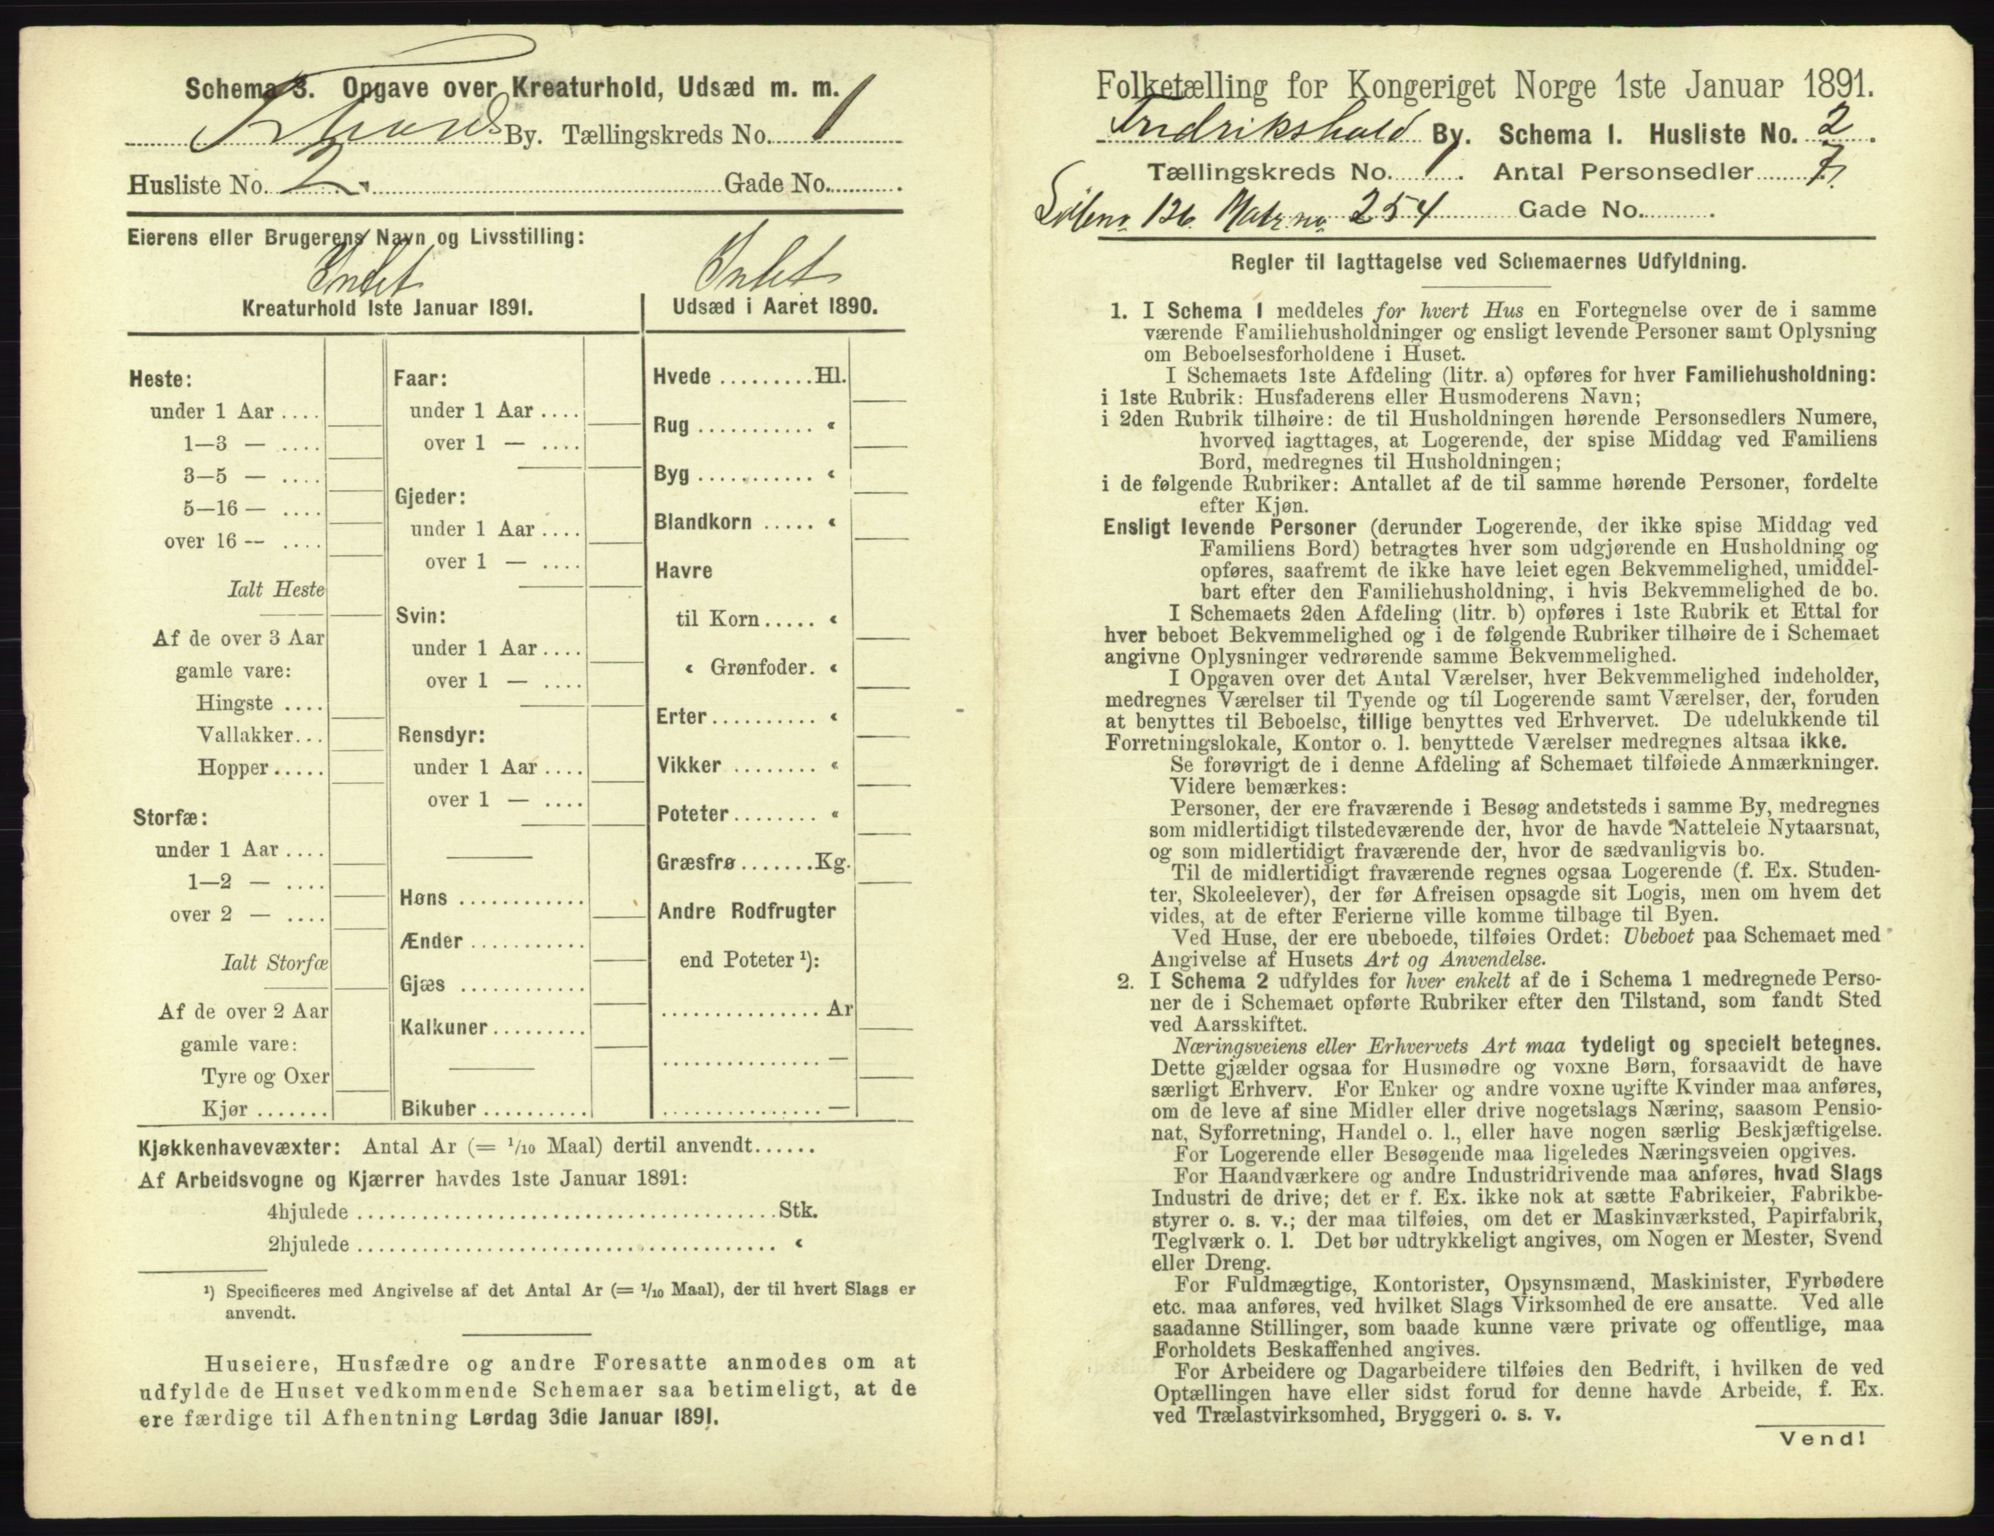 Schema 3. Opgave over Kreaturhold, Udsæd m. m.
By. Tællingskreds No. 1
Husliste No. 2. Gade No. .
Eierens eller Brugerens Navn og Livsstilling:
Intet Intet
Kreaturhold 1ste Januar 1891.
Udsæd i Aaret 1890.
Heste:
under 1 Aar ....
1—3 — ....
3—5 — ....
5—16 — ....
over 16 — ....
Ialt Heste
Af de over 3 Aar
gamle vare:
Hingste ....
Vallakker...
Hopper.....
Storfæ:
under 1 Aar ....
1—2 — ....
over 2 — ....
Ialt Storfæ
Af de over 2 Aar
gamle vare:
Tyre og Oxer
Kjør .......
Faar:
under 1 Aar ....
over 1 — ....
Gjeder:
under 1 Aar ....
over 1 — ....
Svin:
under 1 Aar ....
over 1 — ....
Rensdyr:
under 1 Aar ....
over 1 — ....
Høns ............
Ænder ...........
Gjæs ............
Kalkuner.........
Bikuber ..........
Hvede .........Hl.
Rug ........... "
Byg ........... "
Blandkorn ..... "
Havre
til Korn ..... "
" Grønfoder. "
Erter .......... "
Vikker ........ "
Poteter ........ "
Græsfrø .......Kg.
Andre Rodfrugter
end Poteter ¹):
............... Ar
............... —
............... —
Kjøkkenhavevæxter: Antal Ar (= 1/10 Maal) dertil anvendt......
Af Arbeidsvogne og Kjærrer havdes 1ste Januar 1891:
4hjulede ....................................... Stk.
2hjulede ....................................... "
¹) Specificeres med Angivelse af det Antal Ar (= 1/10 Maal), der til hvert Slags er
anvendt.
Huseiere, Husfædre og andre Foresatte anmodes om at
udfylde de Huset vedkommende Schemaer saa betimeligt, at de
ere færdige til Afhentning Lørdag 3die Januar 1891.
Folketælling for Kongeriget Norge 1ste Januar 1891.
Fredrikshald By. Schema 1. Husliste No. 2.
Tællingskreds No. 1. Antal Personsedler 7.
126 Matr no 254 Gade No. .
Regler til Iagttagelse ved Schemaernes Udfyldning.
1. I Schema 1 meddeles for hvert Hus en Fortegnelse over de i samme
værende Familiehusholdninger og ensligt levende Personer samt Oplysning
om Beboelsesforholdene i Huset.
I Schemaets 1ste Afdeling (litr. a) opføres for hver Familiehusholdning:
i 1ste Rubrik: Husfaderens eller Husmoderens Navn;
i 2den Rubrik tilhøire: de til Husholdningen hørende Personsedlers Numere,
hvorved iagttages, at Logerende, der spise Middag ved Familiens
Bord, medregnes til Husholdningen;
i de følgende Rubriker: Antallet af de til samme hørende Personer, fordelte
efter Kjøn.
Ensligt levende Personer (derunder Logerende, der ikke spise Middag ved
Familiens Bord) betragtes hver som udgjørende en Husholdning og
opføres, saafremt de ikke have leiet egen Bekvemmelighed, umiddel-
bart efter den Familiehusholdning, i hvis Bekvemmelighed de bo.
I Schemaets 2den Afdeling (litr. b) opføres i 1ste Rubrik et Ettal for
hver beboet Bekvemmelighed og i de følgende Rubriker tilhøire de i Schemaet
angivne Oplysninger vedrørende samme Bekvemmelighed.
I Opgaven over det Antal Værelser, hver Bekvemmelighed indeholder,
medregnes Værelser til Tyende og til Logerende samt Værelser, der, foruden
at benyttes til Beboelse, tillige benyttes ved Erhvervet. De udelukkende til
Forretningslokale, Kontor o. l. benyttede Værelser medregnes altsaa ikke.
Se forøvrigt de i denne Afdeling af Schemaet tilføiede Anmærkninger.
Videre bemærkes:
Personer, der ere fraværende i Besøg andetsteds i samme By, medregnes
som midlertidigt tilstedeværende der, hvor de havde Natteleie Nytaarsnat,
og som midlertidigt fraværende der, hvor de sædvanligvis bo.
Til de midlertidigt fraværende regnes ogsaa Logerende (f. Ex. Studen-
ter, Skoleelever), der før Afreisen opsagde sit Logis, men om hvem det
vides, at de efter Ferierne ville komme tilbage til Byen.
Ved Huse, der ere ubeboede, tilføies Ordet: Ubeboet paa Schemaet med
Angivelse af Husets Art og Anvendelse.
2. I Schema 2 udfyldes for hver enkelt af de i Schema 1 medregnede Perso-
ner de i Schemaet opførte Rubriker efter den Tilstand, som fandt Sted
ved Aarsskiftet.
Næringsveiens eller Erhvervets Art maa tydeligt og specielt betegnes.
Dette gjælder ogsaa for Husmødre og voxne Børn, forsaavidt de have
særligt Erhverv. For Enker og andre voxne ugifte Kvinder maa anføres,
om de leve af sine Midler eller drive nogetslags Næring, saasom Pensio-
nat, Syforretning, Handel o. l., eller have nogen særlig Beskjæftigelse.
For Logerende eller Besøgende maa ligeledes Næringsveien opgives.
For Haandværkere og andre Industridrivende maa anføres, hvad Slags
Industri de drive; det er f. Ex. ikke nok at sætte Fabrikeier, Fabrikbe-
styrer o. s. v.; der maa tilføies, om det er Maskinværksted, Papirfabrik,
Teglværk o. l. Det bør udtrykkeligt angives, om Nogen er Mester, Svend
eller Dreng.
For Fuldmægtige, Kontorister, Opsynsmænd, Maskinister, Fyrbødere
etc. maa anføres, ved hvilket Slags Virksomhed de ere ansatte. Ved alle
saadanne Stillinger, som baade kunne være private og offentlige, maa
Forholdets Beskaffenhed angives.
For Arbeidere og Dagarbeidere tilføies den Bedrift, i hvilken de ved
Optællingen have eller sidst forud for denne havde Arbeide, f. Ex.
ved Trælastvirksomhed, Bryggeri o. s. v.
Vend!